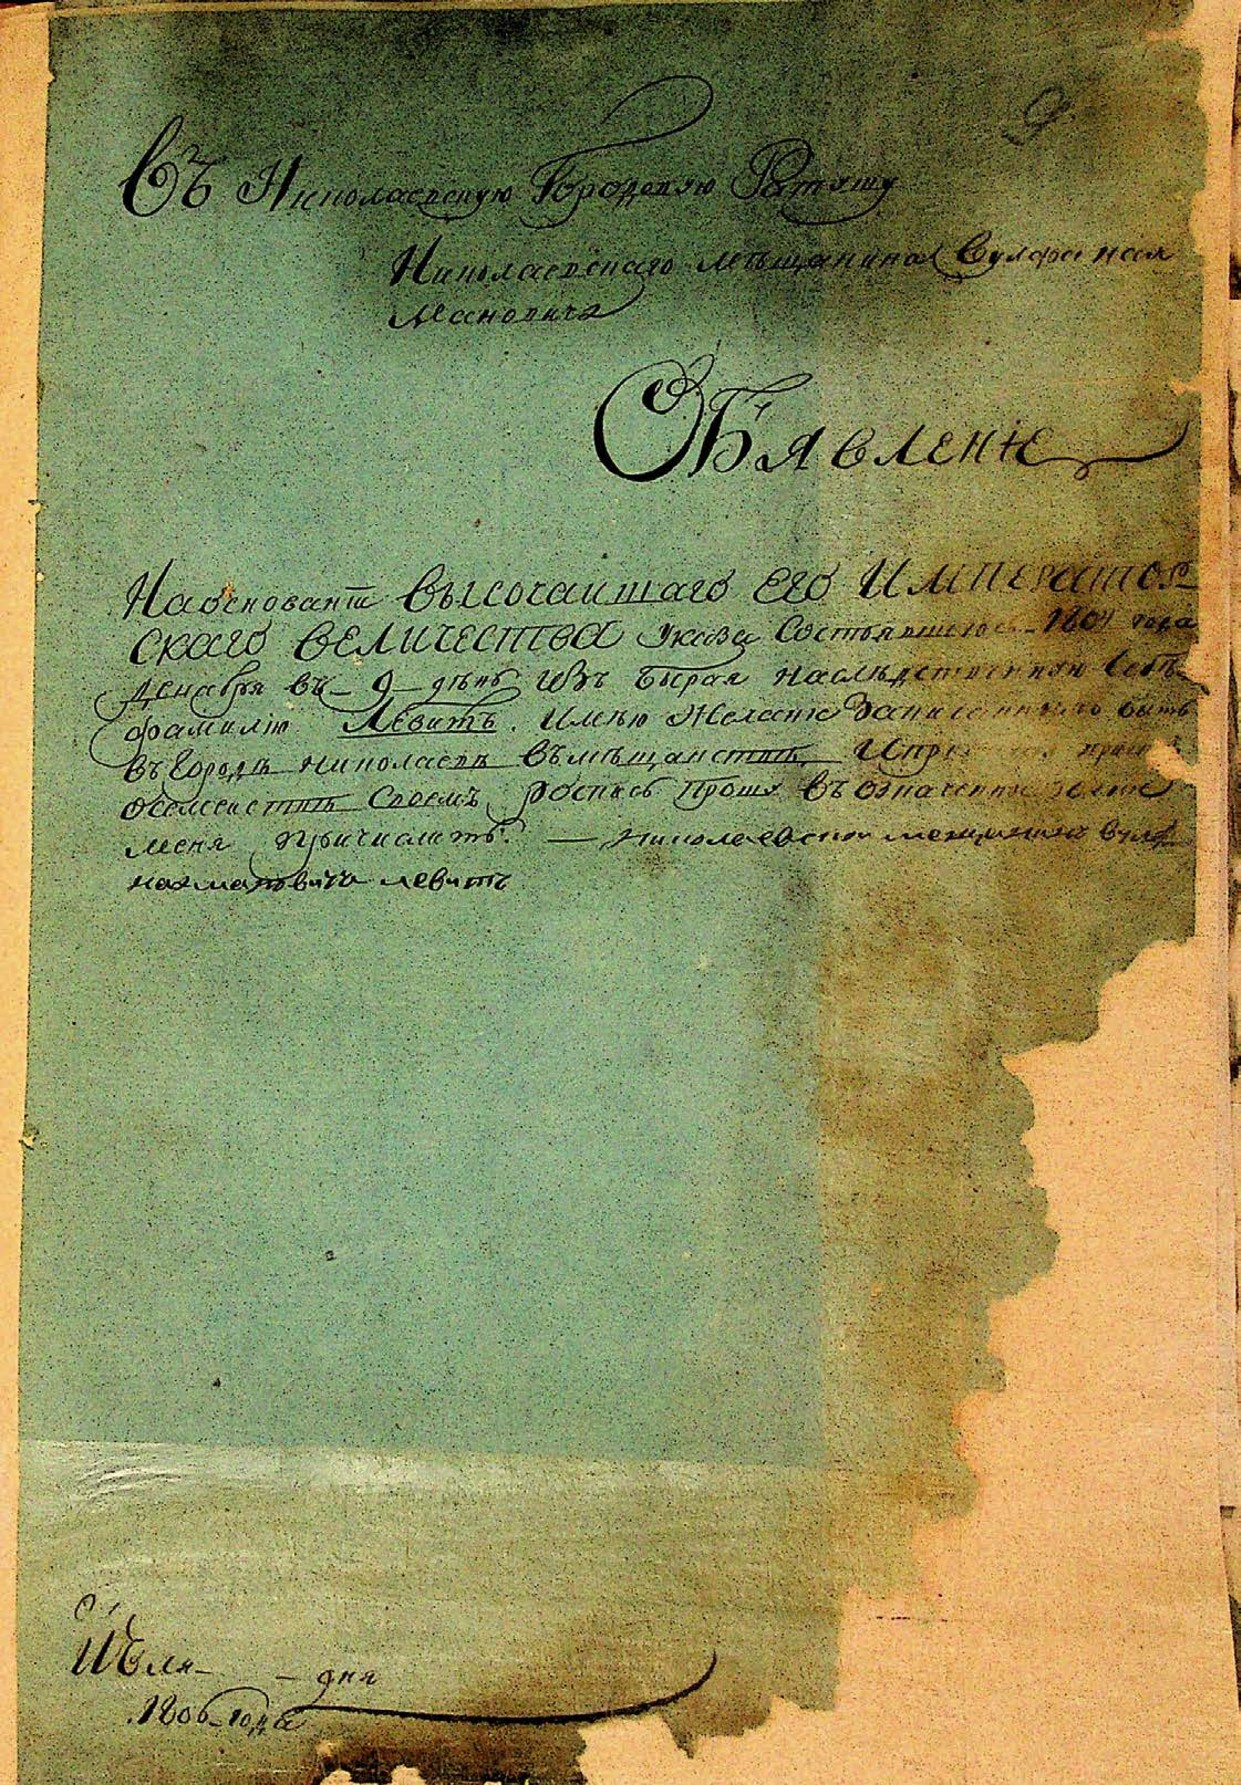 9
Въ Николаевскую Городскую Ратушу
Николаевскаго мѣщанина Вулфа нах
мановича
ОБЪявлениЕ
На основаніи ВысочайШаго ЕГО ИМПЕРАТОР
СКАГО ВЕЛИЧЕСТВА Указа Состоявшегося 1804 года
Декабря въ 9 день избъ бырая наслѣдственную Себѣ
фамилію Левитъ. Имѣю Желаніе Записаннымъ быть
въ Городѣ Николаевѣ въ мѣщанствѣ, И
семействѣ Своемъ роспись Прошу въ означенное
меня Причислить. — Николаевской мещанинъ вулф
нахмановичъ левитъ
Июля — дня
1806 года